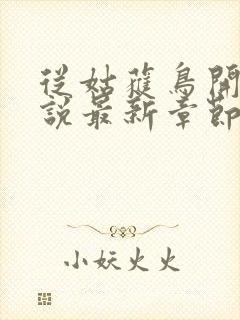 從姑蘿鳥開
說最新章節
小妖火火